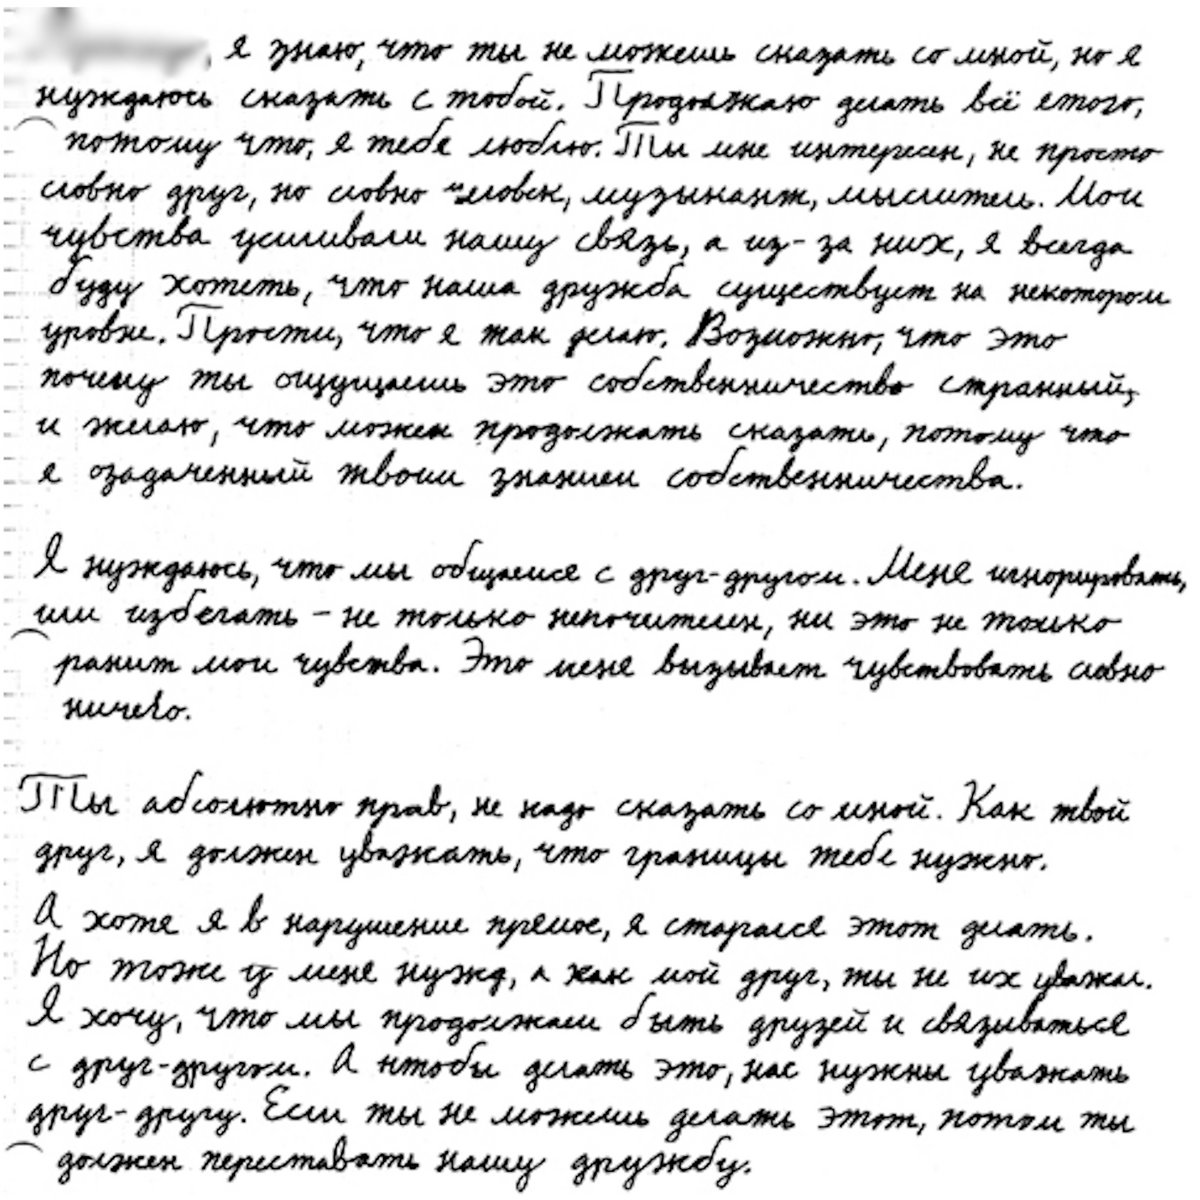 , я знаю, что ты не можешь сказать со мной, но я
нуждаюсь сказать с тобой. Продолжаю делать всё етого,
потому что, я тебя люблю. Ты мне интересен, не просто
словно друг, но словно человек, музыкант, мыслитель. Мои
чувства усиливали нашу связь, а из-за них, я всегда
буду хотеть, что наша дружба существует на некотором
уровне. Прости, что я так делаю. Возможно, что это
почему ты ощущаешь это собственничество странный,
и желаю, что можем продолжать сказать, потому что
я озадаченный твоим знанием собственничества.
Я нуждаюсь, что мы общаемся с друг-другом. Меня игнорировать,
или избегать – не только непочителен, ни это не только
ранит мои чувства. Это меня вызывает чувствовать словно
ничего.
Ты абсолютно прав, не надо сказать со мной. Как твой
друг, я должен уважать, что границы тебе нужно.
А хотя я в нарушение прямое, я старался этот делать.
Но тоже у меня нужд, а как мой друг, ты не их уважал.
Я хочу, что мы продолжаем быть друзей и связываться
с друг-другом. А чтобы делать это, нас нужны уважать
друг-другу. Если ты не можешь делать этот, потом ты
должен переставать нашу дружбу.